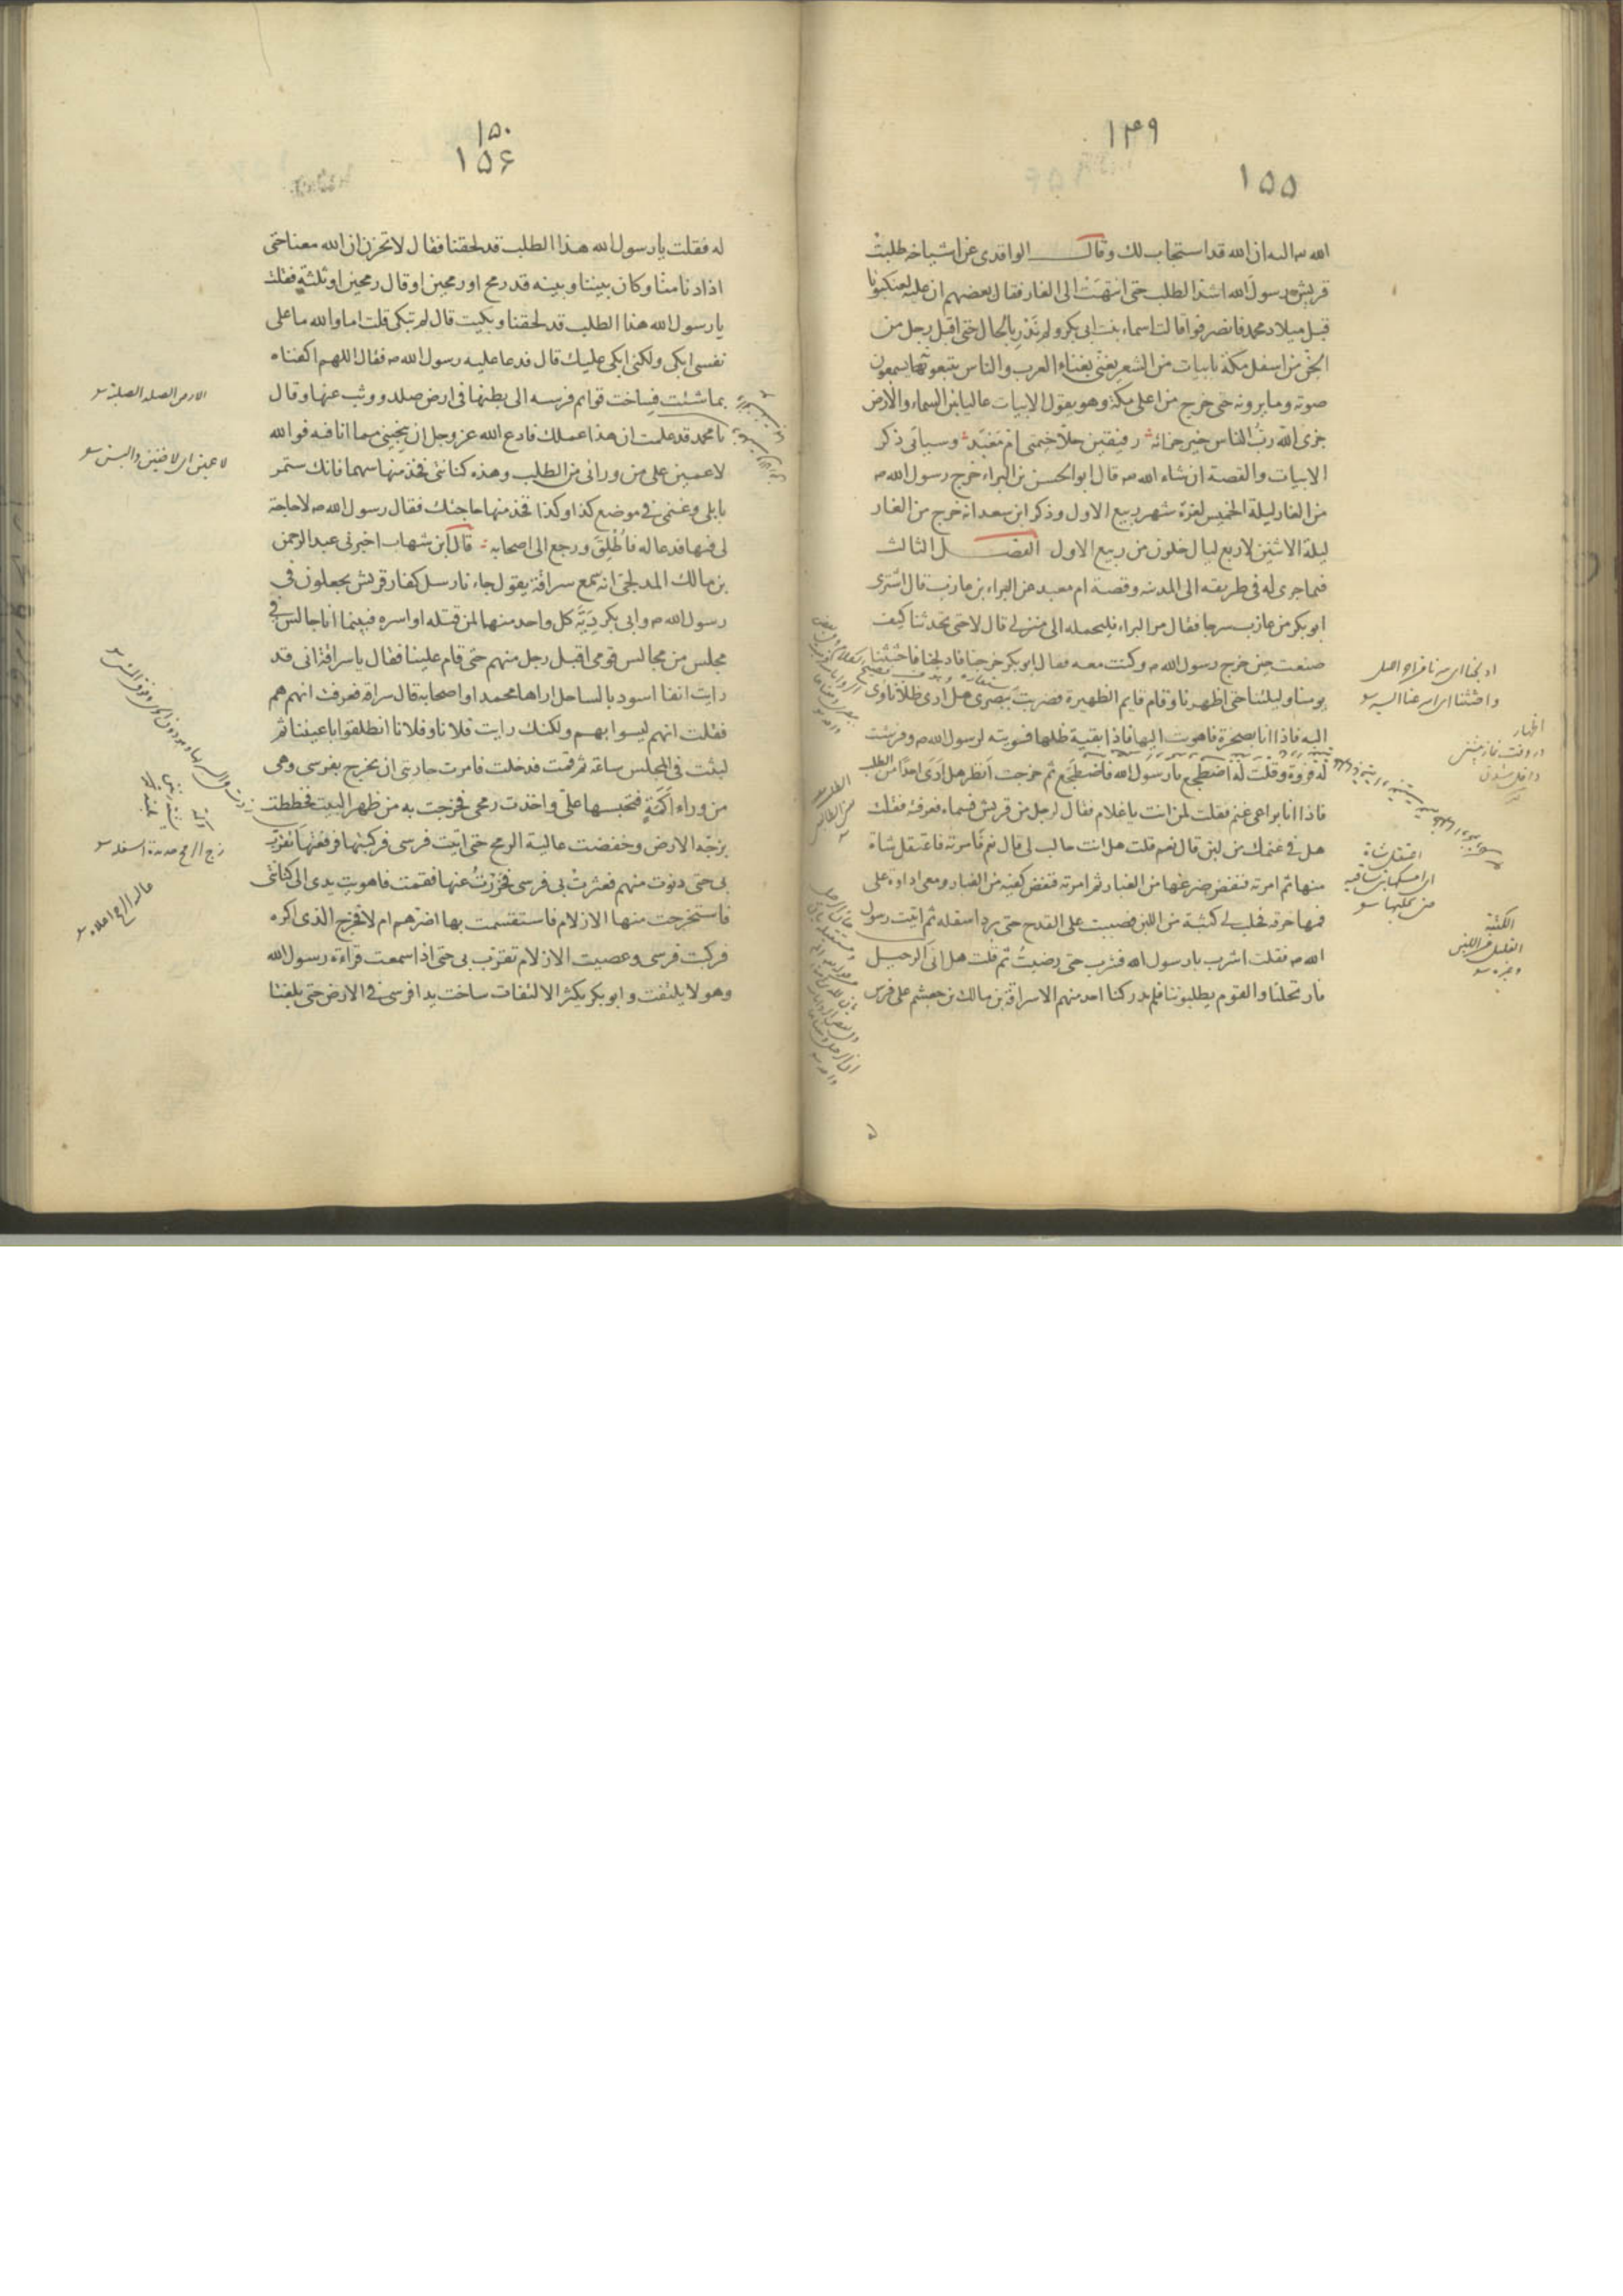 ۱۴۹
۱۵۵
الله اليه ان الله قد استجاب لك وقال الواقدى عن اشياخه طلبت
قريش رسول الله اشد الطلب حتى انتهت الى الغار فقال بعضهم ان عليه لعنكبوتا
قبل ميلاد محمد فانصرفوا قالت اسماء بنت ابى بكر ولم ندر بالحال حتى اقبل رجل من
الجن من اسفل مكة بابيات من الشعر يغنى بغناء العرب والناس يتبعونه يسمعون
صوته وما يرونه حتى خرج من اعلى مكة وهو يقول الابيات عاليا بين السماء والارض
جزى الله رب الناس خير جزائه رفيقين حلا خيمتى ام معبد وسياتى ذكر
الابيات والقصة ان شاء الله قال ابو الحسن بن البراء خرج رسول الله
من الغار ليلة الخميس لغرة شهر ربيع الاول وذكر ابن سعد انه خرج من الغار
ليلة الاثنين لاربع ليال خلون من ربيع الاول الفصل الثالث
فيما جرى له فى طريقه الى المدينه وقصة ام معبد عن البراء بن عازب قال اشترى
ابو بكر من عازب سرجا فقال مر البراء فليحمله الى منزلى قال لا حتى تحدثنا كيف
صنعت حين خرج رسول الله وكنت معه فقال ابو بكر خرجنا فادلجنا فاحثثنا
يومنا وليلتنا حتى اظهرنا وقام قايم الظهيرة فضربت ببصرى هل ارى ظلا ناوى
اليه فاذا انا بصخرة فاهويت اليها فاذا بقية ظلها فسويته لرسول الله وفرشت
له فروة وقلت له اضطجع يا رسول الله فاضطجع ثم خرجت انظر هل ارى احدا من الطلب
فاذا انا براعى غنم فقلت لمن انت يا غلام فقال لرجل من قريش فسماه فعرفته فقلت
هل فى غنمك من لبن قال نعم قلت هل انت حالب لى قال نعم فامرته فاعتقل شاة
منها ثم امرته فنفض ضرعها من الغبار ثم امرته فنفض كفيه من الغبار ومعى اداوة على
فمها خرقه فحلب لى كثبة من اللبن فصببت على القدح حتى برد اسفله ثم اتيت رسول
الله فقلت اشرب يا رسول الله فشرب حتى رضيت ثم قلت هل انى الرحيل
فارتحلنا والقوم يطلبوننا فلم يدركنا احد منهم الا سراقة بن مالك بن جعشم على فرس
اظهار
در وقت نماز پيشين
اعتقل شاة
الكثبة
القليل من اللبن
وغيره
۱۵۰
۱۵۶
له فقلت يا رسول الله هذا الطلب قد لحقنا فقال لا تحزن ان الله معنا حتى
اذا دنا منا وكان بيننا وبينه قد رمح او رمحين او قال رمحين او ثلثة فقلت
يا رسول الله هذا الطلب قد لحقنا وبكيت قال لم تبكى قلت اما والله ما على
نفسى ابكى ولكنى ابكى عليك قال فدعا عليه رسول الله فقال اللهم اكفناه
بما شئت فساخت قوائم فرسه الى بطنها فى ارض صلد ووثب عنها وقال
يا محمد قد علمت ان هذا عملك فادع الله عز وجل ان ينجينى مما انا فيه فوالله
لاعمين على من ورائى من الطلب وهذه كنانتى فخذ منها سهما فانك ستمر
بابلى وغنمى فى موضع كذا وكذا فخذ منها حاجتك فقال رسول الله لا حاجة
لى فيها فدعا له فاطلق ورجع الى اصحابه قال ابن شهاب اخبرنى عبد الرحمن
بن مالك المدلجى انه سمع سراقة يقول جاءنا رسل كفار قريش يجعلون فى
رسول الله وابى بكر دية كل واحد منهما لمن قتله او اسره فبينما انا جالس فى
مجلس من مجالس قومى اقبل رجل منهم حتى قام علينا فقال يا سراقة انى قد
رايت انفا اسود بالساحل اراها محمدا واصحابه قال سراقة فعرفت انهم هم
فقلت انهم ليسوا بهم ولكنك رايت فلانا وفلانا انطلقوا باعيننا ثم
لبثت فى المجلس ساعة ثم قمت فدخلت فامرت جاريتى ان تخرج بفرسى وهى
من وراء اكمة فتحبسها على واخذت رمحى فخرجت به من ظهر البيت فخططت
بزجه الارض وخفضت عالية الرمح حتى اتيت فرسى فركبتها فرفعتها تقرب
بى حتى دنوت منهم فعثرت بى فرسى فخررت عنها فقمت فاهويت يدى الى كنانتى
فاستخرجت منها الازلام فاستقسمت بها اضرهم ام لا فخرج الذى اكره
فركبت فرسى وعصيت الازلام تقرب بى حتى اذا سمعت قراءة رسول الله
وهو لا يلتفت وابو بكر يكثر الالتفات ساخت يدا فرسى فى الارض حتى بلغتا